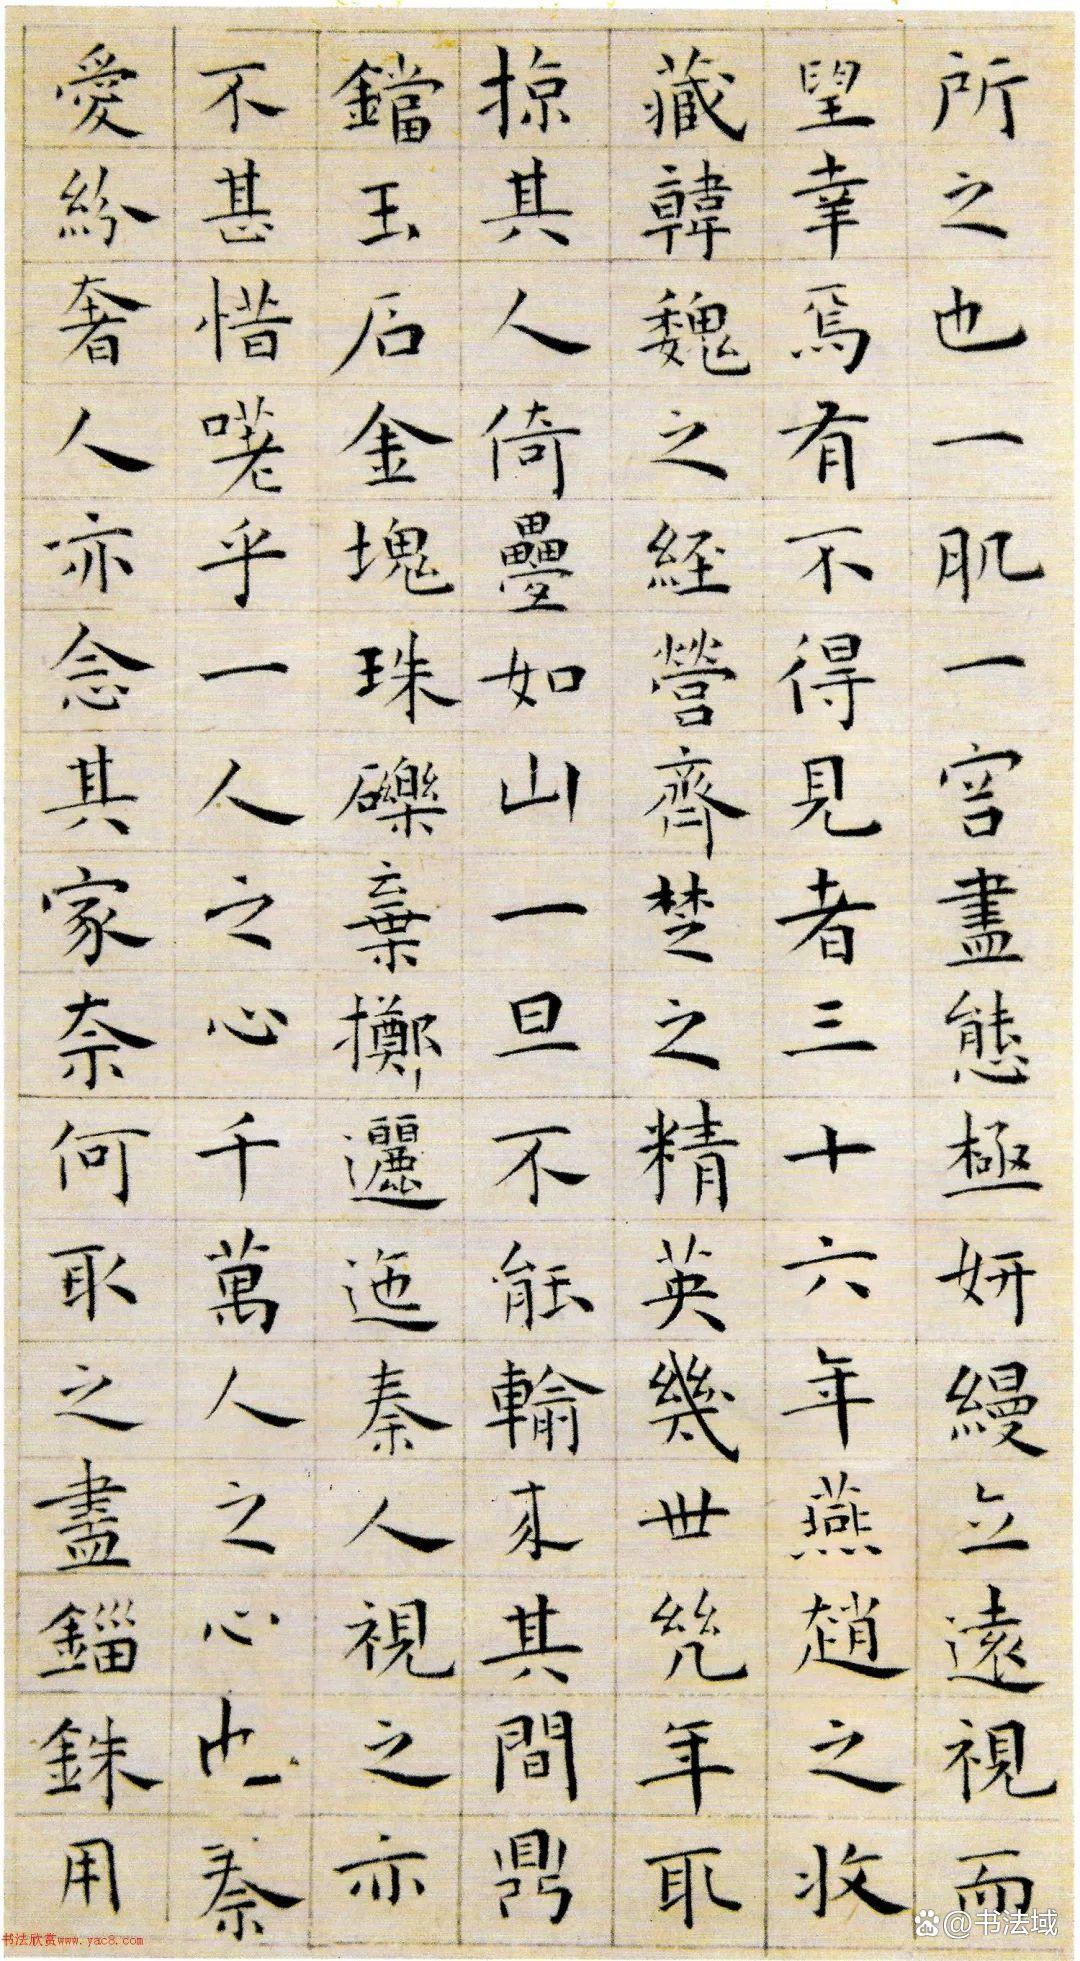 所之也一肌一容盡態極妍縵立遠視而
望幸焉有不得見者三十六年燕趙之收
藏韓魏之經營齊楚之精英幾世幾年取
掠其人倚疊如山一旦不能輸来其間鼎
鐺玉石金塊珠礫棄擲邐迤秦人視之亦
不甚惜嗟乎一人之心千萬人之心也秦
愛紛奢人亦念其家奈何取之盡錙銖用
书法欣赏www.yac8.com
du@书法域